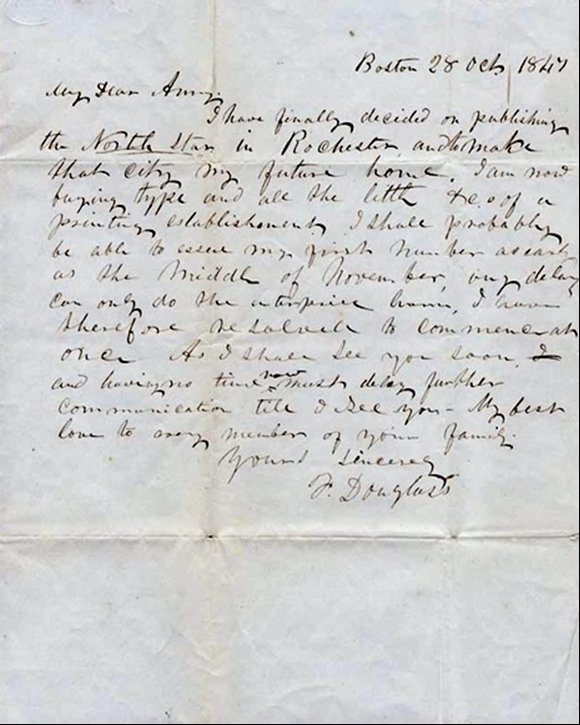 Boston 28 Oct 1847
My Dear Amy.
I have finally decided on publishing
the North Star in Rochester and to make
that city my future home. I am now
buying type and all the little &c of a
printing establishment. I shall probably
be able to issue my first number as early
as the middle of November, any delay
can only do the enterprise harm, I have
therefore resolved to commence at
once. As I shall see you soon, I
and having no time now must delay further
communication till I see you - My best
love to every member of your family
Yours Sincerely
F. Douglass